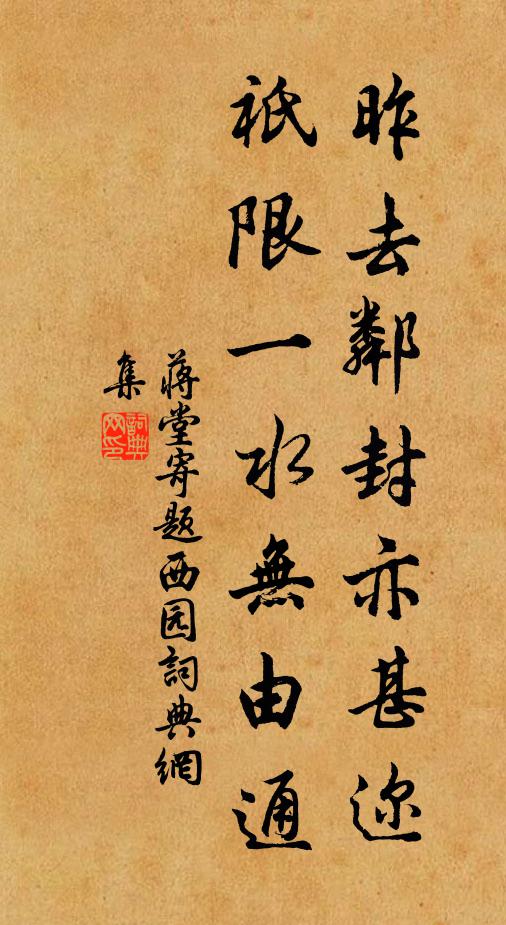 昨去鄰封亦甚迩
祇限一水無由通
蔣堂寄题西园詞典網
集
詞典網印